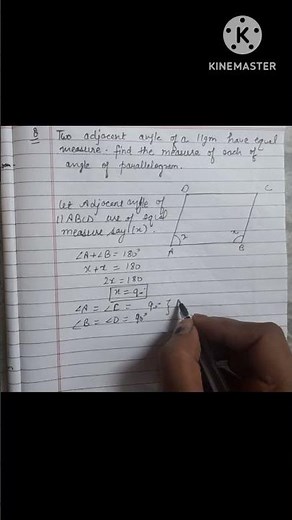 KINEMASTER
8 Two adjacent angle of a 11gm have equal
measure. find the measure of each of
angle of parallelogram.
D C
let Adjacent angle of
11ABCD are of equal
measure say (x)
x x
A B
∠A+∠B = 180°
x+x = 180
2x = 180
x = 90
∠A = ∠C = 90°
∠B = ∠D = 90°